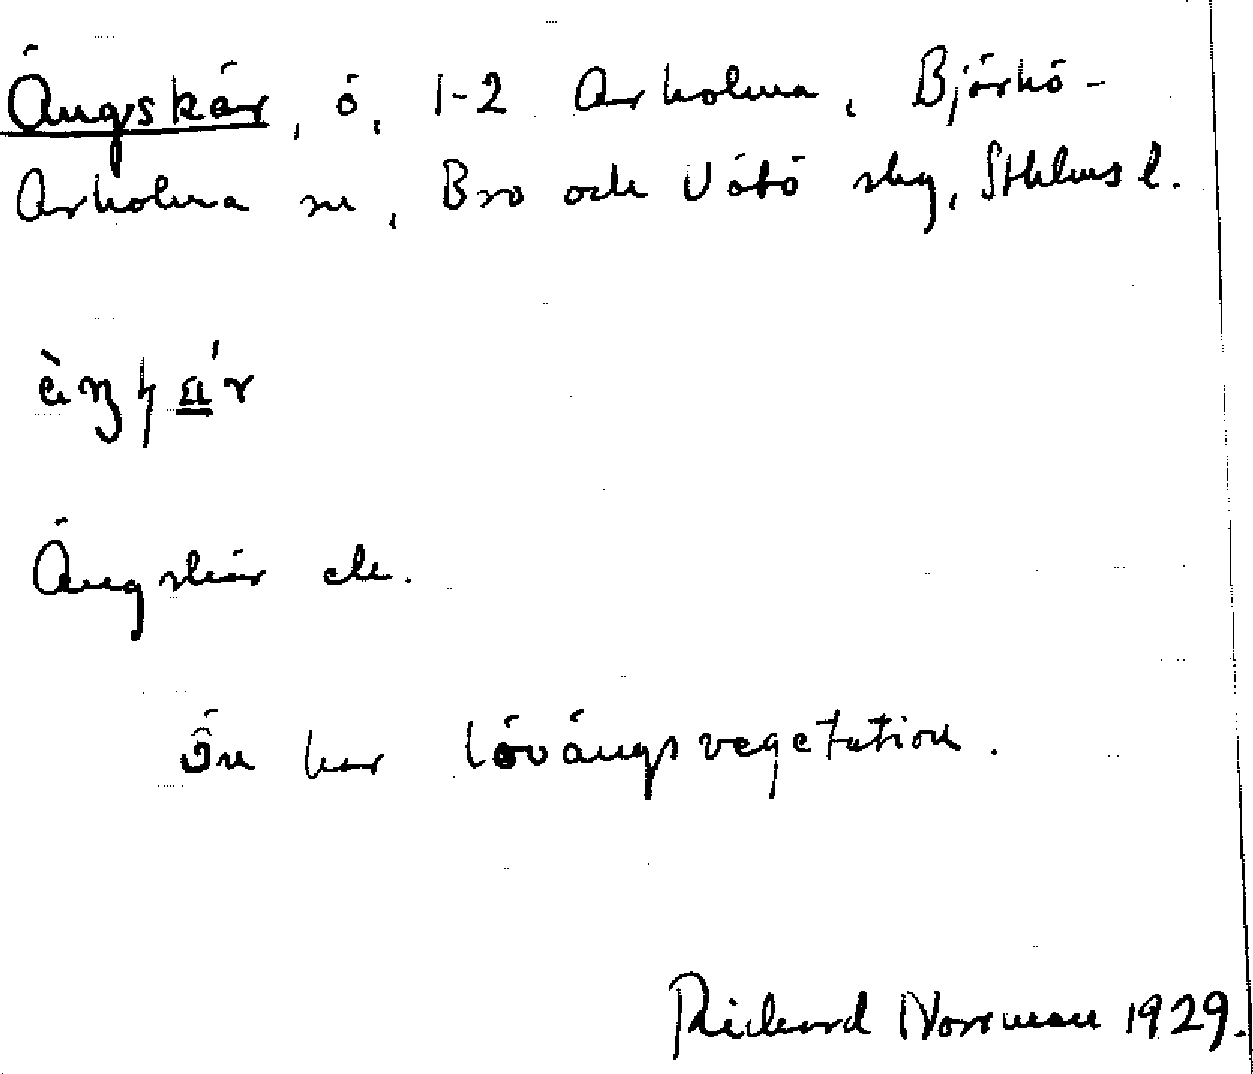 Ängskär, ö, 1-2 Arholma, Björkö-
Arholma sn, Bro och Vätö skg, Sthlms l.
Ängskär ek.
Ön har lövängsvegetation.
Rickard Norrman 1929.